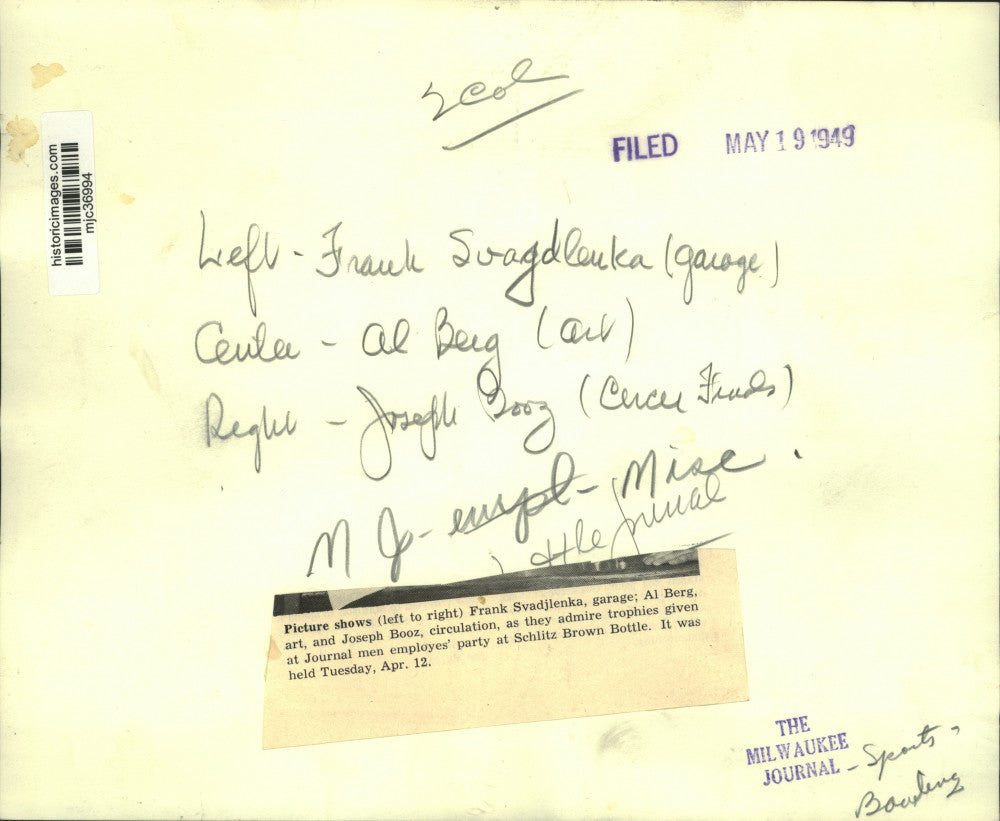 2 col
FILED MAY 19 1949
historicimages.com
mjc36994
Left - Frank Svagdlenka (garage)
Center - Al Berg (art)
Right - Joseph Booz (
MJ - empl - Misc.
Little Journal
Picture shows (left to right) Frank Svadjlenka, garage; Al Berg,
art, and Joseph Booz, circulation, as they admire trophies given
at Journal men employes' party at Schlitz Brown Bottle. It was
held Tuesday, Apr. 12.
THE
MILWAUKEE
JOURNAL - Sports -
Bowling